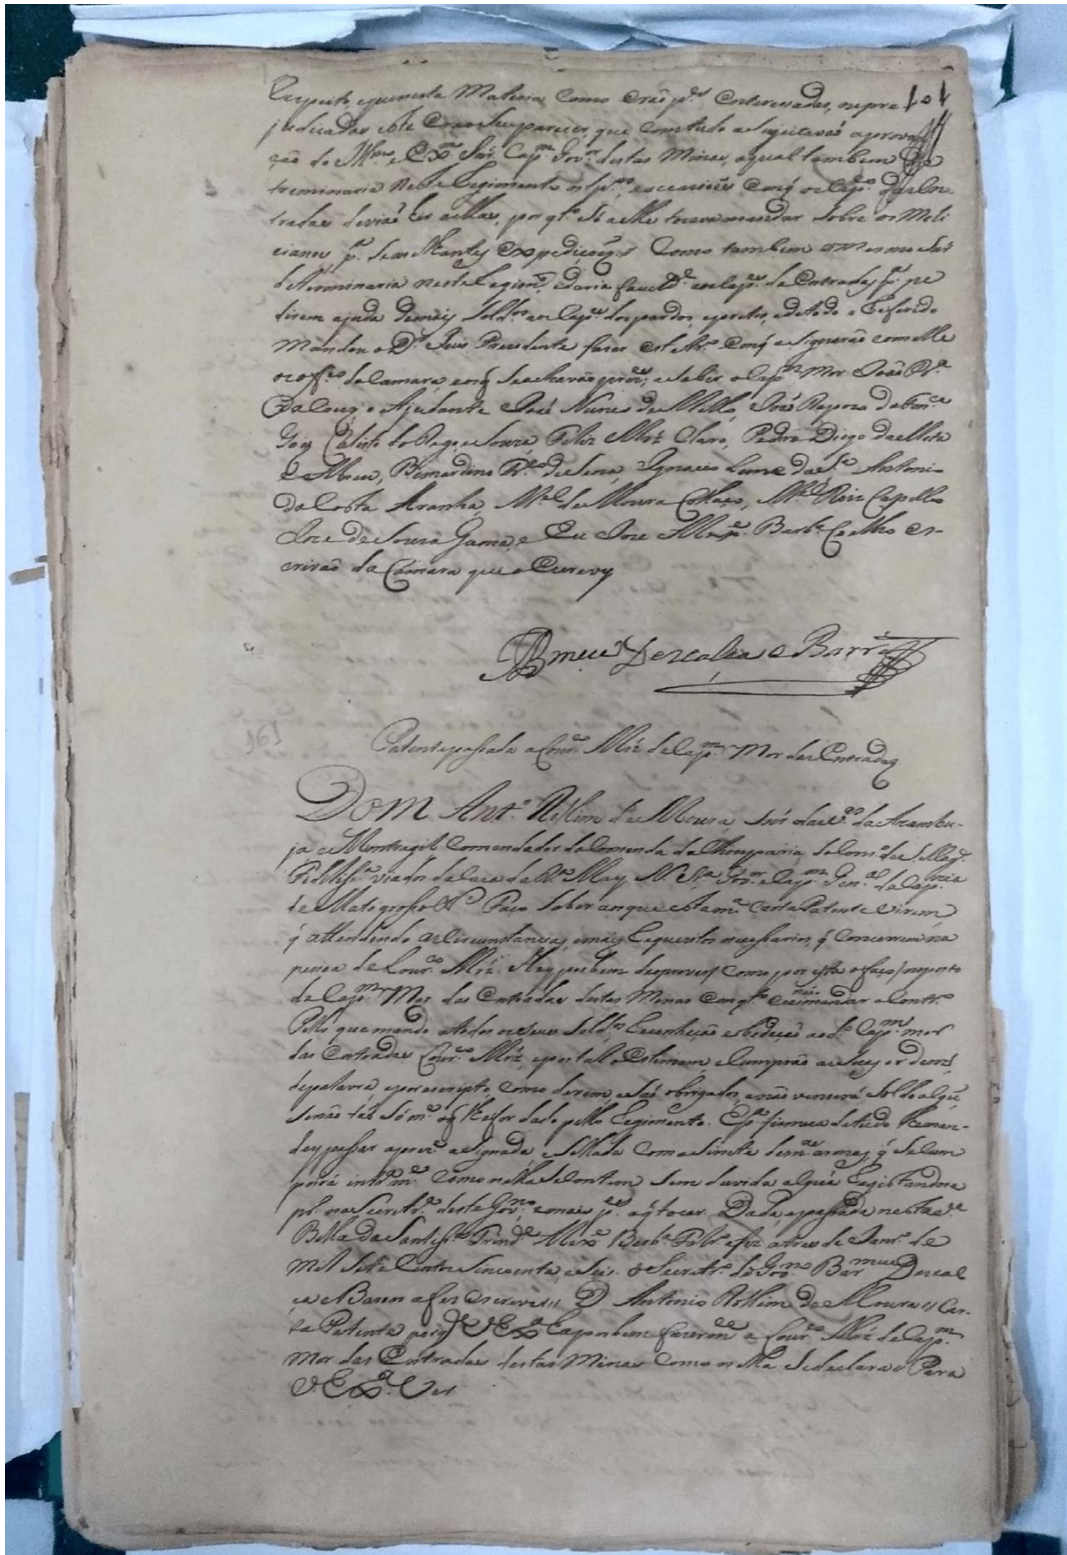 101
respeito e q nesta Materia, como erão p.ᵉˢ enteressadas, e o pre
judicadas este era o Seu parecer, que comtudo se sujeitavaõ a aprova
ção do Ill.ᵐᵒ e Ex.ᵐᵒ Snr. Cap.ᵐ Gov.ᵒʳ destas Minas, a qual tambem de
treminaria neste Regimento as ocazioẽs em q os Cap.ᵉˢ das En
tradas deviaõ hir a ellas, por q.ᵗᵒ Só a elle tocava mandar sobre os Meli
cianos p.ᵃ Semilhantes Expediçoẽs Como tambem o mesmo Snr
detriminaria neste Regim.ᵗᵒ e daria faculd.ᵉ aos Cap.ᵉˢ da Entrada p.ᵃ pe
direm ajuda de mais Sold.ᵒˢ aos Cap.ᵉˢ dos pardos, e pretos, e de todo o Referido
Mandou o D.ʳ Juis Prezidente fazer este A.ᵗᵒ em q asignaraõ com elle
os of.ᵉˢ da Camara, e os q se acharaõ prez.ᵗᵉˢ a saber o Cap.ᵐ Mor Joaõ Pr.ᵃ
da Cruz, o Ajudante José Nunes de Mello, José Raposo da Fon.ᶜᵃ
Goes, Calisto do Rego e Souza, Felis Miz Claro, Pedro Diogo da Mota
e Abreu, Bernardino R.ᵒ de Sena, Ignacio Leme da S.ᵃ Antonio
da Costa Aranha, M.ᵉˡ de Moura Collaço, M.ᵉˡ Roiz Capello
Joze de Souza Gama, e Eu Joze Marq.ˢ Barb.ᵃ Coelho es-
crivaõ da Camara que o Escrevy
Bar.ᵐᵉᵘ Descalça e Barros
161
Patente passada a Lour.ᶜᵒ Miz de Cap.ᵐ Mor das Entradas
DOM Ant.ᵒ Rollim de Moura Snr da V.ᵃ da Azambu-
ja e Montargil Comendador da Comenda da Ameyxieira, do Cons.ᵒ de S. Mag.ᵉ
Fidelissima viador da Caza da R.ª May N. Sr.ᵃ Gov.ᵒʳ e Cap.ᵐ Gen.ᵃˡ da Cap.ⁿⁱᵃ
de Mato grosso &.ᵃ Faço saber aos que esta m.ᵃ Carta Patente virem,
q attendendo as circunstancias, e mais Requezitos necessarios, q concorrem na
pessoa de Lour.ᶜᵒ Miz. Hey por bem de prover (como por esta o faço) no posto
de Cap.ᵐ Mor das Entradas destas Minas em q.ᵗᵒ eu não mandar o contr.ᵒ
Pello que mando a todos os seus Sold.ᵒˢ Reconheção e obedeção ao d.ᵒ Cap.ᵐ mor
das Entradas Lour.ᶜᵒ Miz, e por tal o Estimem, e Cumprão as Suas ordens,
de palavra, e por escripto, como devem, e são obrigados, e não vencerá Soldo algũ
senão tão só m.ᵗᵉ o q lhe for dado pello Regimento. E p.ᵃ firmeza de tudo lhe man-
dey passar a prez.ᵗᵉ asignada e Sellada com o Sinete de m.ᵃˢ armas, q se cum
prirá inteiram.ᵗᵉ como nella se contem sem duvida algũa Registandose
pr.ᵒ na Secretr.ᵃ deste Gov.ⁿᵒ e mais p.ᵉˢ a q tocar. Dada, e passada nesta V.ᵃ
Bella da Santiss.ᵃ Trind.ᵉ Miz Barb.ᵃ Frr.ᵃ a fiz a tres de Janr.ᵒ de
Mil Sete Centos Sincoenta e Seis. o Secretr.ᵒ do Gov.ⁿᵒ Bar.ᵐᵉᵘ Descal
ça e Barros a fez escrever // D. Antonio Rollim de Moura // Car-
ta Patente porq V. Ex.ᵃ Ha por bem fazer m.ᶜᵉ a Lour.ᶜᵒ Miz de Cap.ᵐ
Mor das Entradas destas Minas como nella se declara // Para
V. Ex.ᵃ Ver